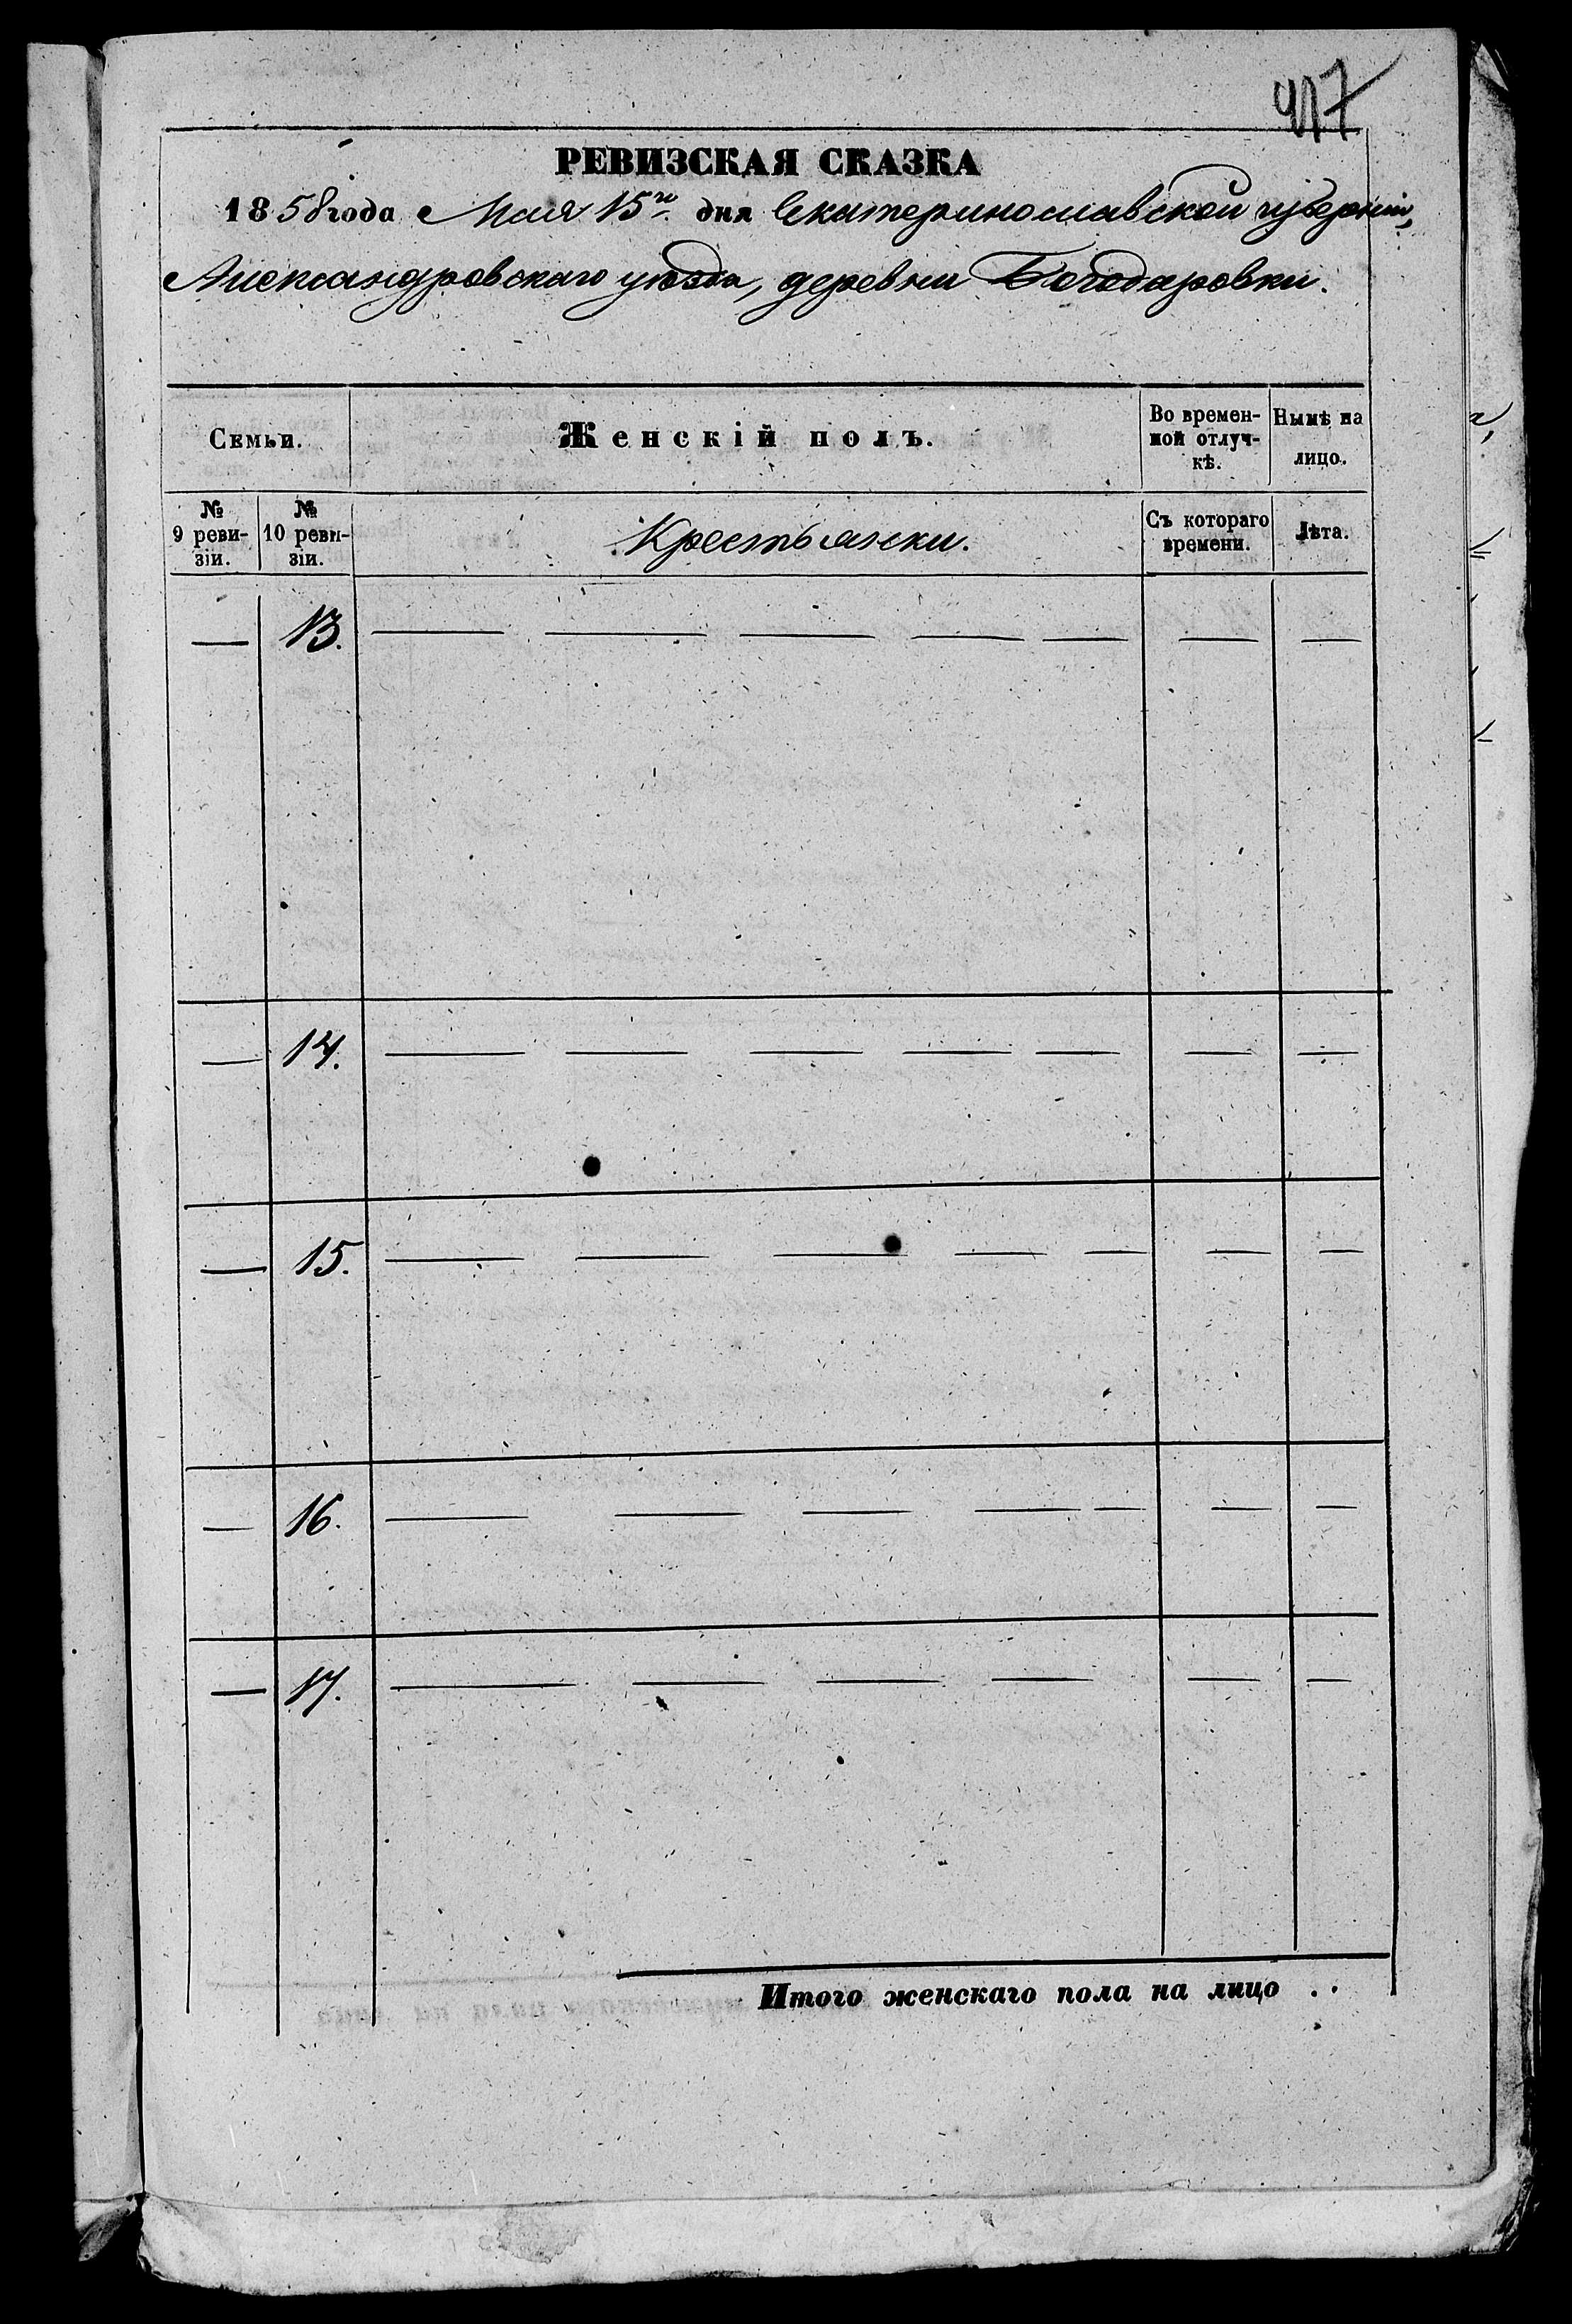 417
РЕВИЗСКАЯ СКАЗКА
1858 года Мая 15го дня Екатеринославской губерніи,
Александровскаго уѣзда, деревни Богодаровки.
Семьи. Женскій полъ. Во времен-ной отлуч-кѣ. Нынѣ на лицо.
№ 9 реви-зіи. № 10 реви-зіи. Крестьянки. Съ котораго времени. Лѣта.
— 13. — — — — — — —
— 14. — — — — — — —
— 15. — — — — — — —
— 16. — — — — — — —
— 17. — — — — — —
Итого женскаго пола на лицо . .